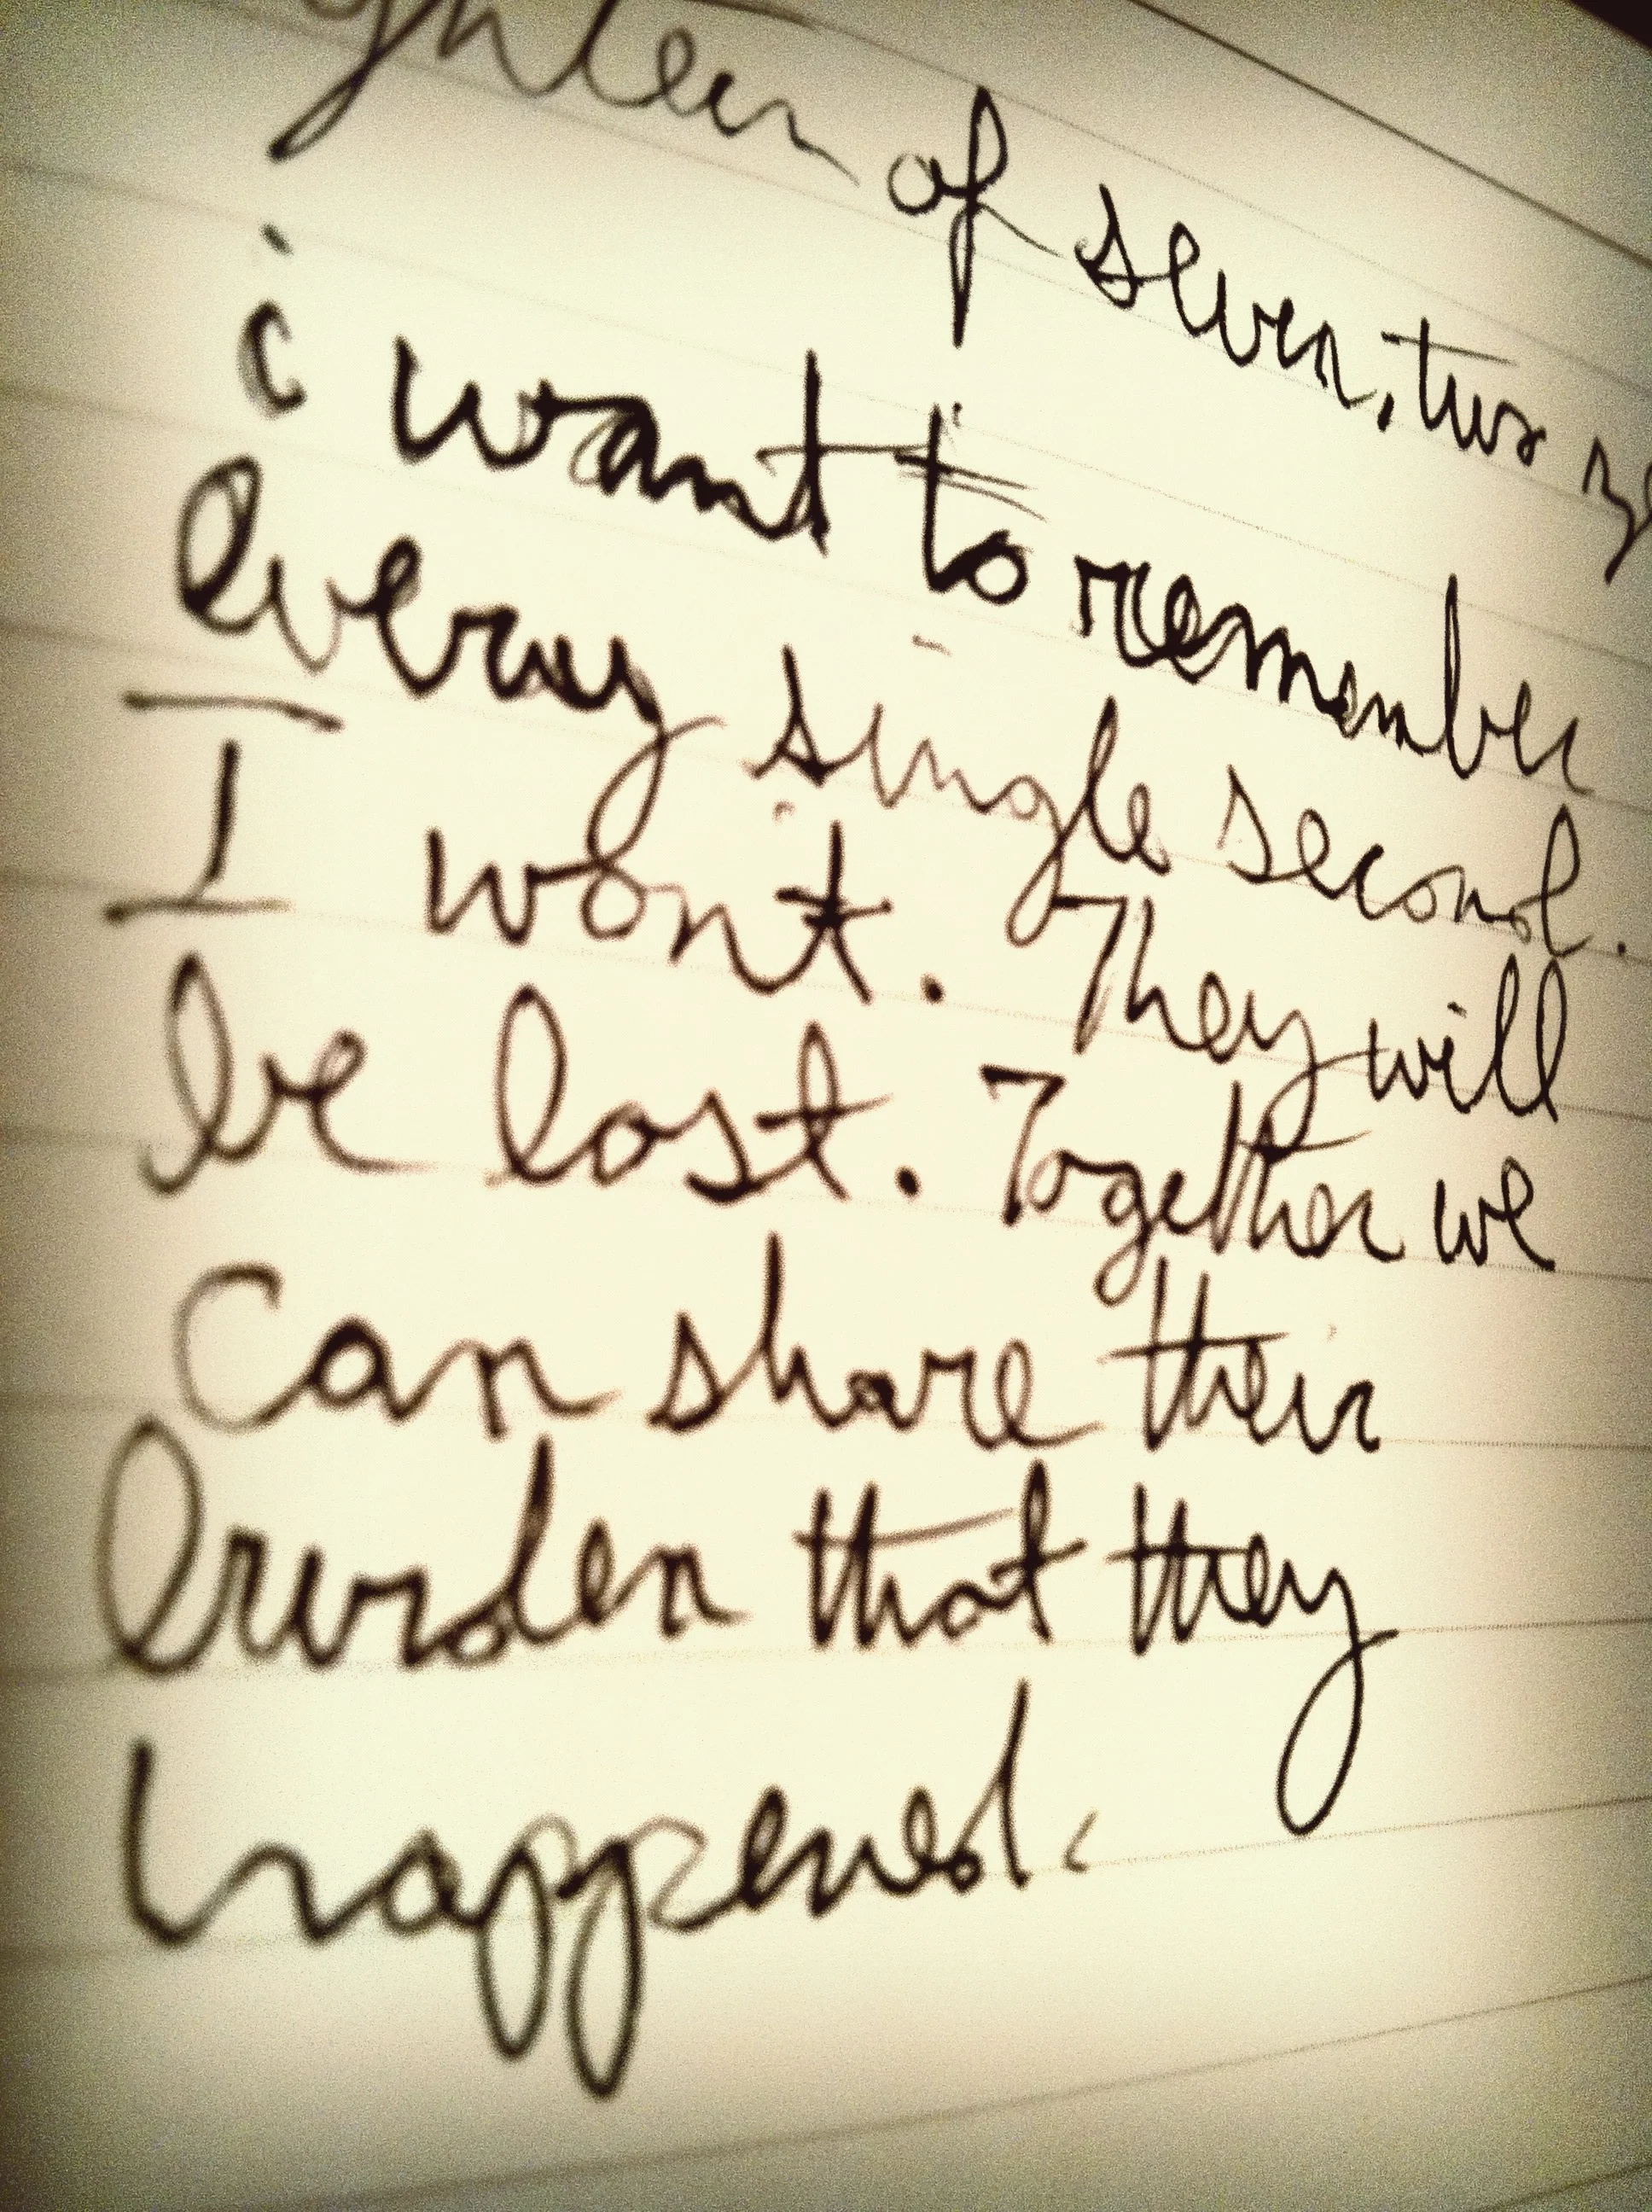 of seven, two
i want to remember
every single second.
I wont. They will
be lost. Together we
can share their
burden that they
happened.